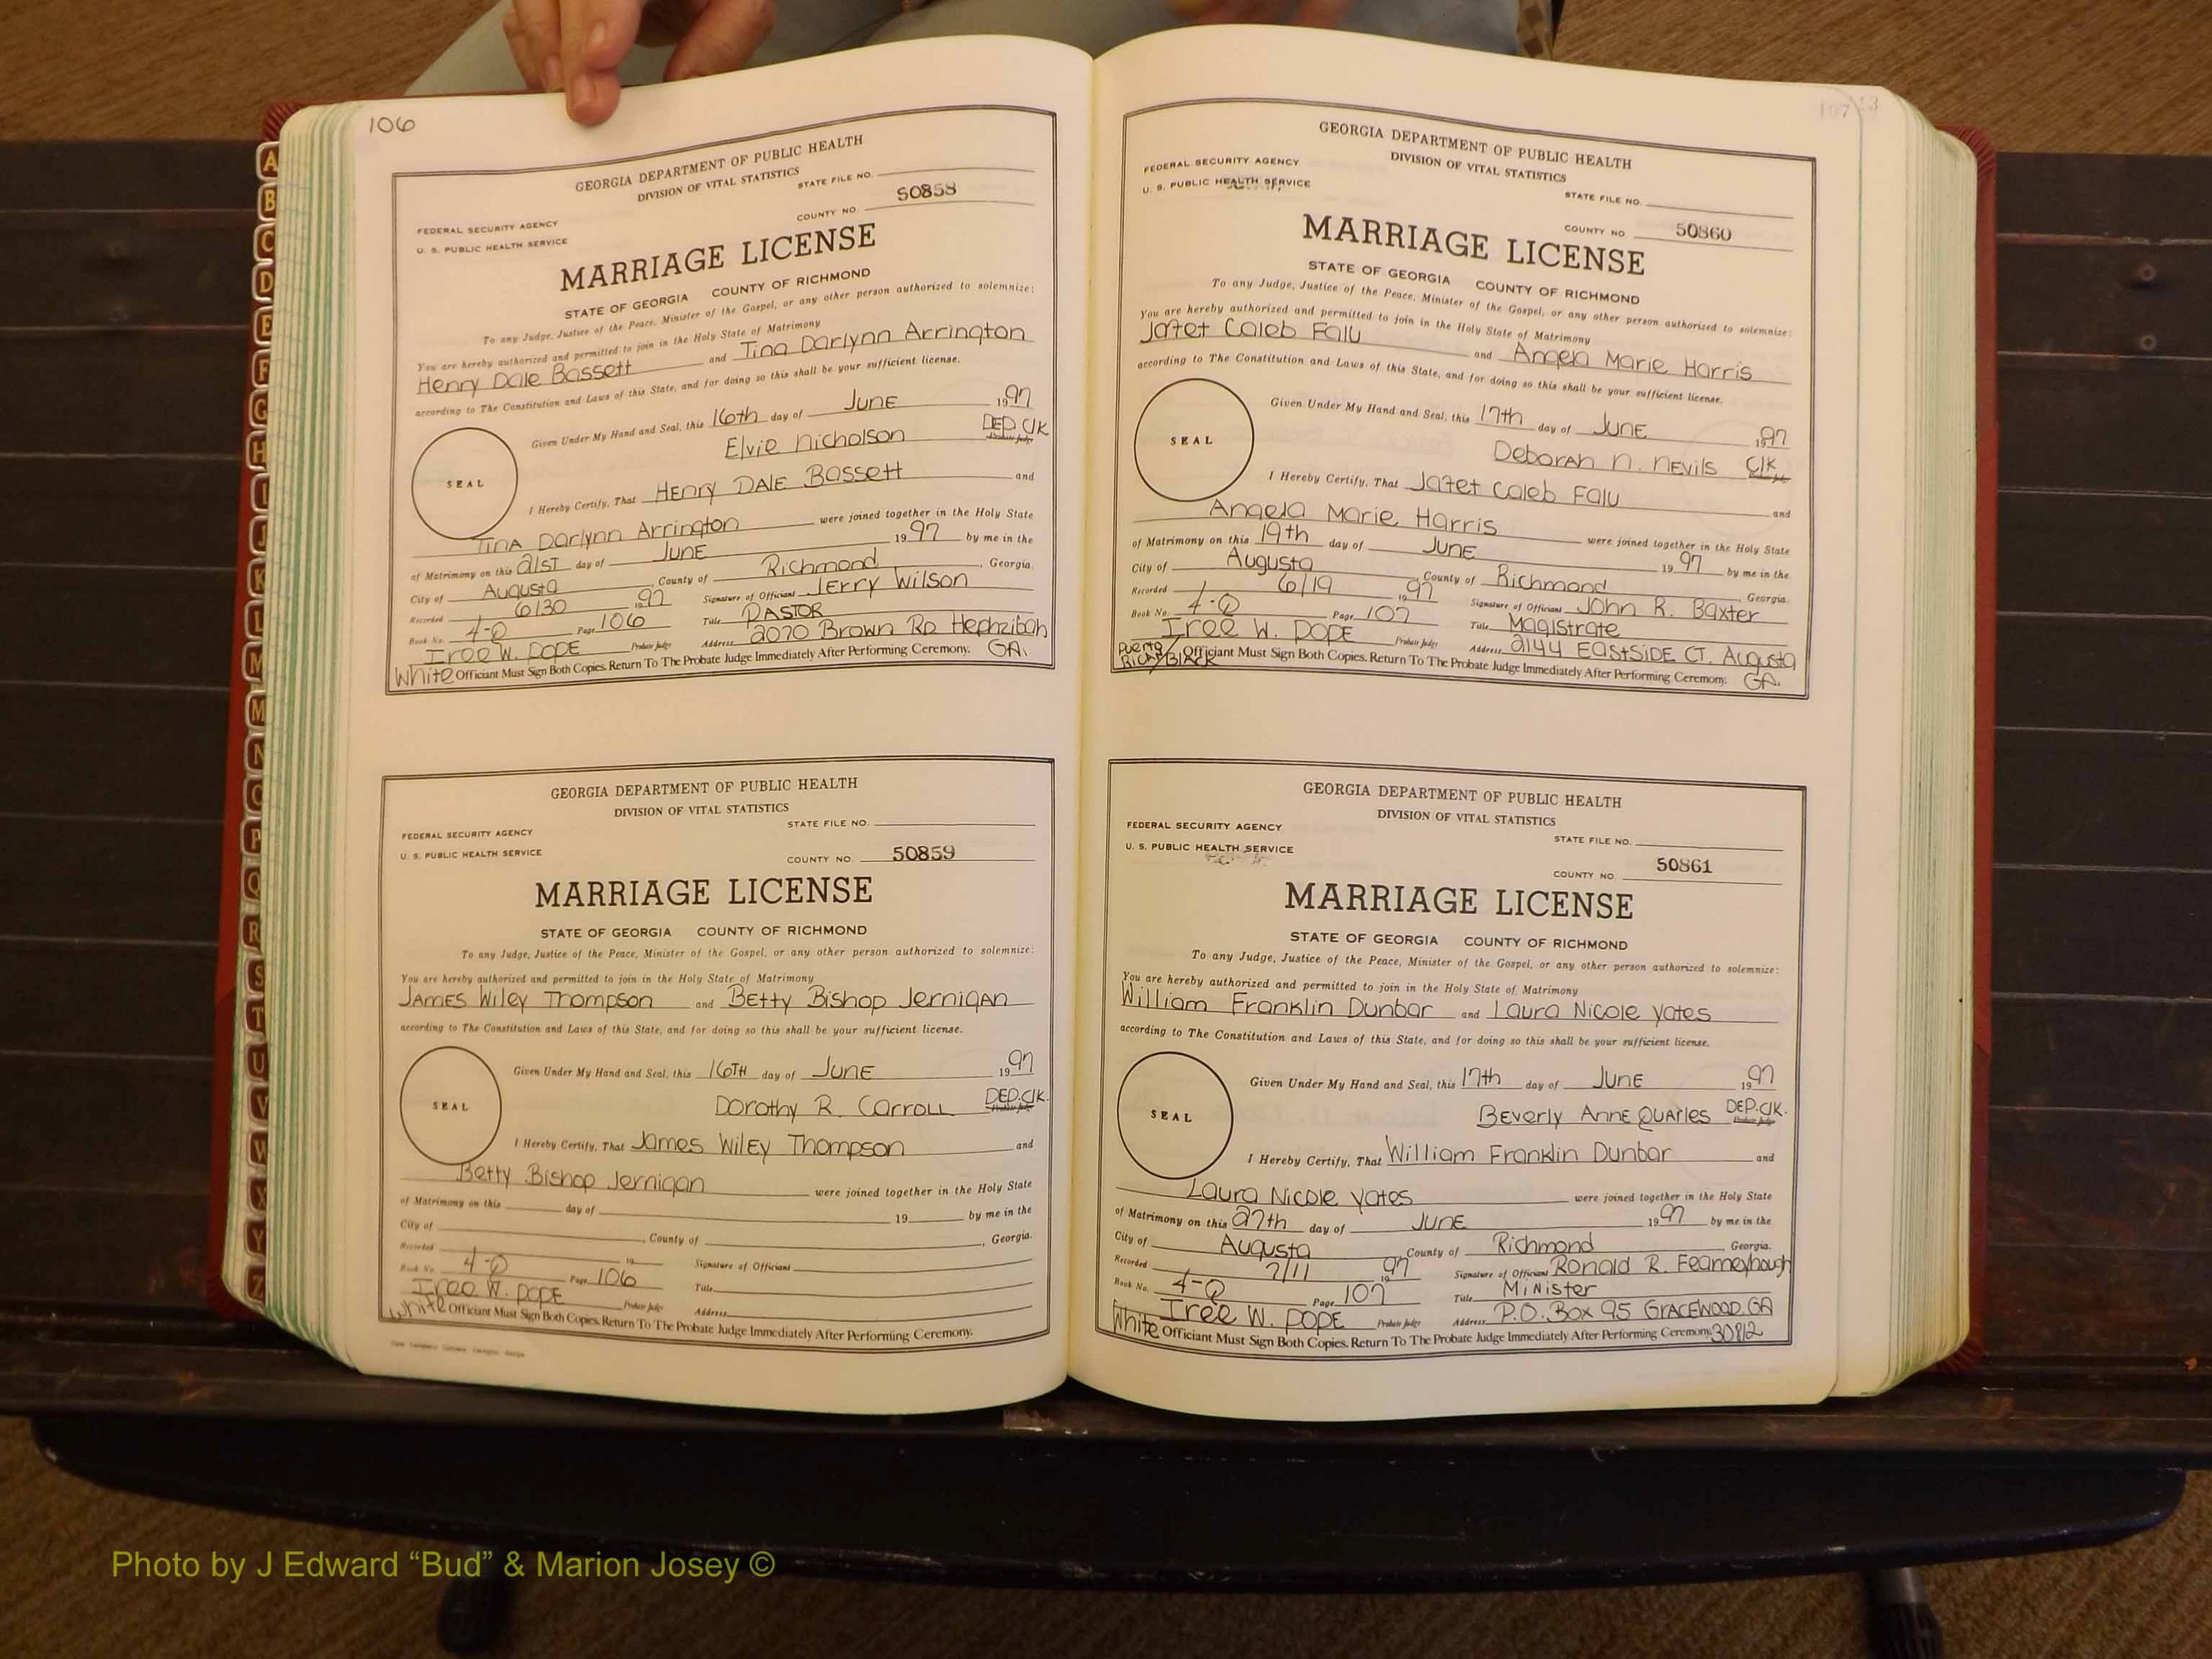 106
GEORGIA DEPARTMENT OF PUBLIC HEALTH
DIVISION OF VITAL STATISTICS
STATE FILE NO.
FEDERAL SECURITY AGENCY
U. S. PUBLIC HEALTH SERVICE
COUNTY NO 50858
MARRIAGE LICENSE
STATE OF GEORGIA COUNTY OF RICHMOND
To any Judge, Justice of the Peace, Minister of the Gospel, or any other person authorized to solemnize:
You are hereby authorized and permitted to join in the Holy State of Matrimony
Henry Dale Bassett and Tina Darlynn Arrington
according to The Constitution and Laws of this State, and for doing so this shall be your sufficient license.
Given Under My Hand and Seal, this 16th day of JUNE 1997
Elvie Nicholson DEP. Clk
SEAL
I Hereby Certify, That HENry DALE Bassett and
TinA Darlynn Arrington were joined together in the Holy State
of Matrimony on this 21ST day of JUNE 1997 by me in the
City of Augusta, County of Richmond, Georgia.
Recorded 6/30 1997 Signature of Officiant JErry Wilson
Book No. 4-Q Page 106 Title PASTOR
Iree W. POPE Probate Judge Address 2070 Brown RD Hephzibah GA.
White Officiant Must Sign Both Copies. Return To The Probate Judge Immediately After Performing Ceremony.
GEORGIA DEPARTMENT OF PUBLIC HEALTH
DIVISION OF VITAL STATISTICS
STATE FILE NO.
FEDERAL SECURITY AGENCY
U. S. PUBLIC HEALTH SERVICE
COUNTY NO. 50859
MARRIAGE LICENSE
STATE OF GEORGIA COUNTY OF RICHMOND
To any Judge, Justice of the Peace, Minister of the Gospel, or any other person authorized to solemnize:
You are hereby authorized and permitted to join in the Holy State of Matrimony
JAMES Wiley Thompson and BETTy Bishop JerniGAN
according to The Constitution and Laws of this State, and for doing so this shall be your sufficient license.
Given Under My Hand and Seal, this 16TH day of JUNE 1997
Dorothy R. CarroLL DEP. Clk.
SEAL
I Hereby Certify, That James WilEy Thompson and
Betty Bishop Jernigan were joined together in the Holy State
of Matrimony on this day of 19 by me in the
City of , County of , Georgia.
Recorded 19 Signature of Officiant
Book No. 4-Q Page 106 Title
Iree W. POPE Probate Judge Address
White Officiant Must Sign Both Copies. Return To The Probate Judge Immediately After Performing Ceremony.
107
GEORGIA DEPARTMENT OF PUBLIC HEALTH
DIVISION OF VITAL STATISTICS
FEDERAL SECURITY AGENCY
U. S. PUBLIC HEALTH SERVICE
STATE FILE NO.
COUNTY NO 50860
MARRIAGE LICENSE
STATE OF GEORGIA COUNTY OF RICHMOND
To any Judge, Justice of the Peace, Minister of the Gospel, or any other person authorized to solemnize:
You are hereby authorized and permitted to join in the Holy State of Matrimony
Caleb Falu and Angela Marie Harris
according to The Constitution and Laws of this State, and for doing so this shall be your sufficient license.
Given Under My Hand and Seal, this 17th day of JUNE 1997
Deborah N. NEvils Clk
SEAL
I Hereby Certify, That Caleb Falu and
Angela Marie Harris were joined together in the Holy State
of Matrimony on this 19th day of JUNE 1997 by me in the
City of Augusta, County of Richmond, Georgia.
Recorded 6/19 1997 Signature of Officiant John R. Baxter
Book No. 4-Q Page 107 Title Magistrate
Iree W. POPE Probate Judge Address 2144 EAStSiDE CT. Augusta GA.
Puerto Rican/Black Officiant Must Sign Both Copies. Return To The Probate Judge Immediately After Performing Ceremony.
GEORGIA DEPARTMENT OF PUBLIC HEALTH
DIVISION OF VITAL STATISTICS
FEDERAL SECURITY AGENCY
U. S. PUBLIC HEALTH SERVICE
STATE FILE NO.
COUNTY NO. 50861
MARRIAGE LICENSE
STATE OF GEORGIA COUNTY OF RICHMOND
To any Judge, Justice of the Peace, Minister of the Gospel, or any other person authorized to solemnize:
You are hereby authorized and permitted to join in the Holy State of Matrimony
William Franklin Dunbar and Laura Nicole Yates
according to The Constitution and Laws of this State, and for doing so this shall be your sufficient license.
Given Under My Hand and Seal, this 17th day of JUNE 1997
BEverly AnnE QUArles DEP. Clk.
SEAL
I Hereby Certify, That William Franklin Dunbar and
Laura Nicole Yates were joined together in the Holy State
of Matrimony on this 27th day of JUNE 1997 by me in the
City of Augusta, County of Richmond, Georgia.
Recorded 7/11 1997 Signature of Officiant Ronald R.
Book No. 4-Q Page 107 Title MiNister
Iree W. POPE Probate Judge Address P.O. Box 95 GRACEWOOD, GA
White Officiant Must Sign Both Copies. Return To The Probate Judge Immediately After Performing Ceremony. 30812
A
B
C
D
E
F
G
H
I
J
K
L
M
M
N
O
P
Q
R
S
T
U
V
W
X
Y
Z
Photo by J Edward “Bud” & Marion Josey ©